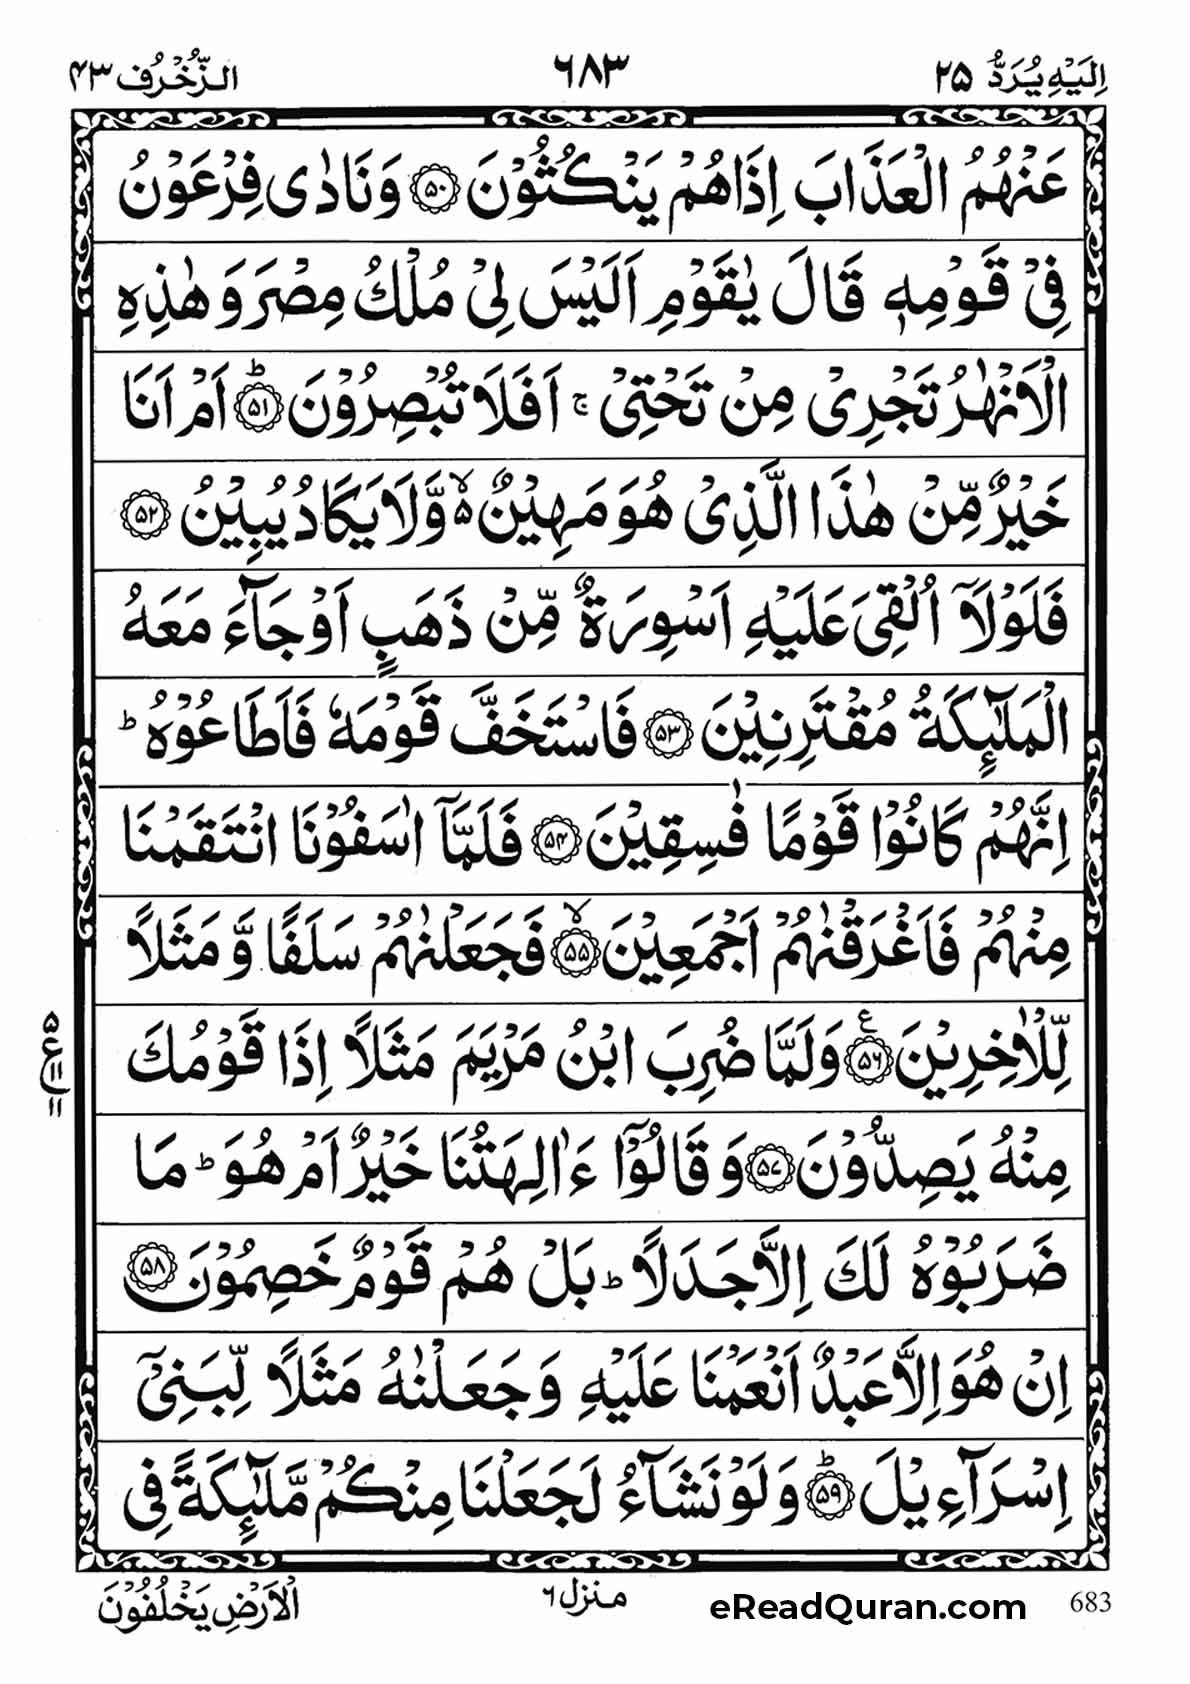 اِلَیْهِ یُرَدُّ ۲۵ ۶۸۳ الزُّخْرُف ۴۳
عَنْهُمُ الْعَذَابَ اِذَا هُمْ یَنْكُثُوْنَ ۝۵۰ وَ نَادٰی فِرْعَوْنُ
فِیْ قَوْمِهٖ قَالَ یٰقَوْمِ اَلَیْسَ لِیْ مُلْكُ مِصْرَ وَ هٰذِهِ
الْاَنْهٰرُ تَجْرِیْ مِنْ تَحْتِیْ ۚ اَفَلَا تُبْصِرُوْنَ ؕ۝۵۱ اَمْ اَنَا
خَیْرٌ مِّنْ هٰذَا الَّذِیْ هُوَ مَهِیْنٌ ۵ۙ وَّ لَا یَكَادُ یُبِیْنُ ۝۵۲
فَلَوْلَاۤ اُلْقِیَ عَلَیْهِ اَسْوِرَةٌ مِّنْ ذَهَبٍ اَوْ جَآءَ مَعَهُ
الْمَلٰٓىِٕكَةُ مُقْتَرِنِیْنَ ۝۵۳ فَاسْتَخَفَّ قَوْمَهٗ فَاَطَاعُوْهُ ؕ
اِنَّهُمْ كَانُوْا قَوْمًا فٰسِقِیْنَ ۝۵۴ فَلَمَّاۤ اٰسَفُوْنَا انْتَقَمْنَا
مِنْهُمْ فَاَغْرَقْنٰهُمْ اَجْمَعِیْنَ ۙ۝۵۵ فَجَعَلْنٰهُمْ سَلَفًا وَّ مَثَلًا
لِّلْاٰخِرِیْنَ ۝۵۶ ع وَ لَمَّا ضُرِبَ ابْنُ مَرْیَمَ مَثَلًا اِذَا قَوْمُكَ
۵ ع ۱۱ ۱۱
مِنْهُ یَصِدُّوْنَ ۝۵۷ وَ قَالُوْۤا ءَاٰلِهَتُنَا خَیْرٌ اَمْ هُوَ ؕ مَا
ضَرَبُوْهُ لَكَ اِلَّا جَدَلًا ؕ بَلْ هُمْ قَوْمٌ خَصِمُوْنَ ۝۵۸
اِنْ هُوَ اِلَّا عَبْدٌ اَنْعَمْنَا عَلَیْهِ وَ جَعَلْنٰهُ مَثَلًا لِّبَنِیْۤ
اِسْرَآءِیْلَ ؕ۝۵۹ وَ لَوْ نَشَآءُ لَجَعَلْنَا مِنْكُمْ مَّلٰٓىِٕكَةً فِی
الْاَرْضِ یَخْلُفُوْنَ منزل ۶ eReadQuran.com 683